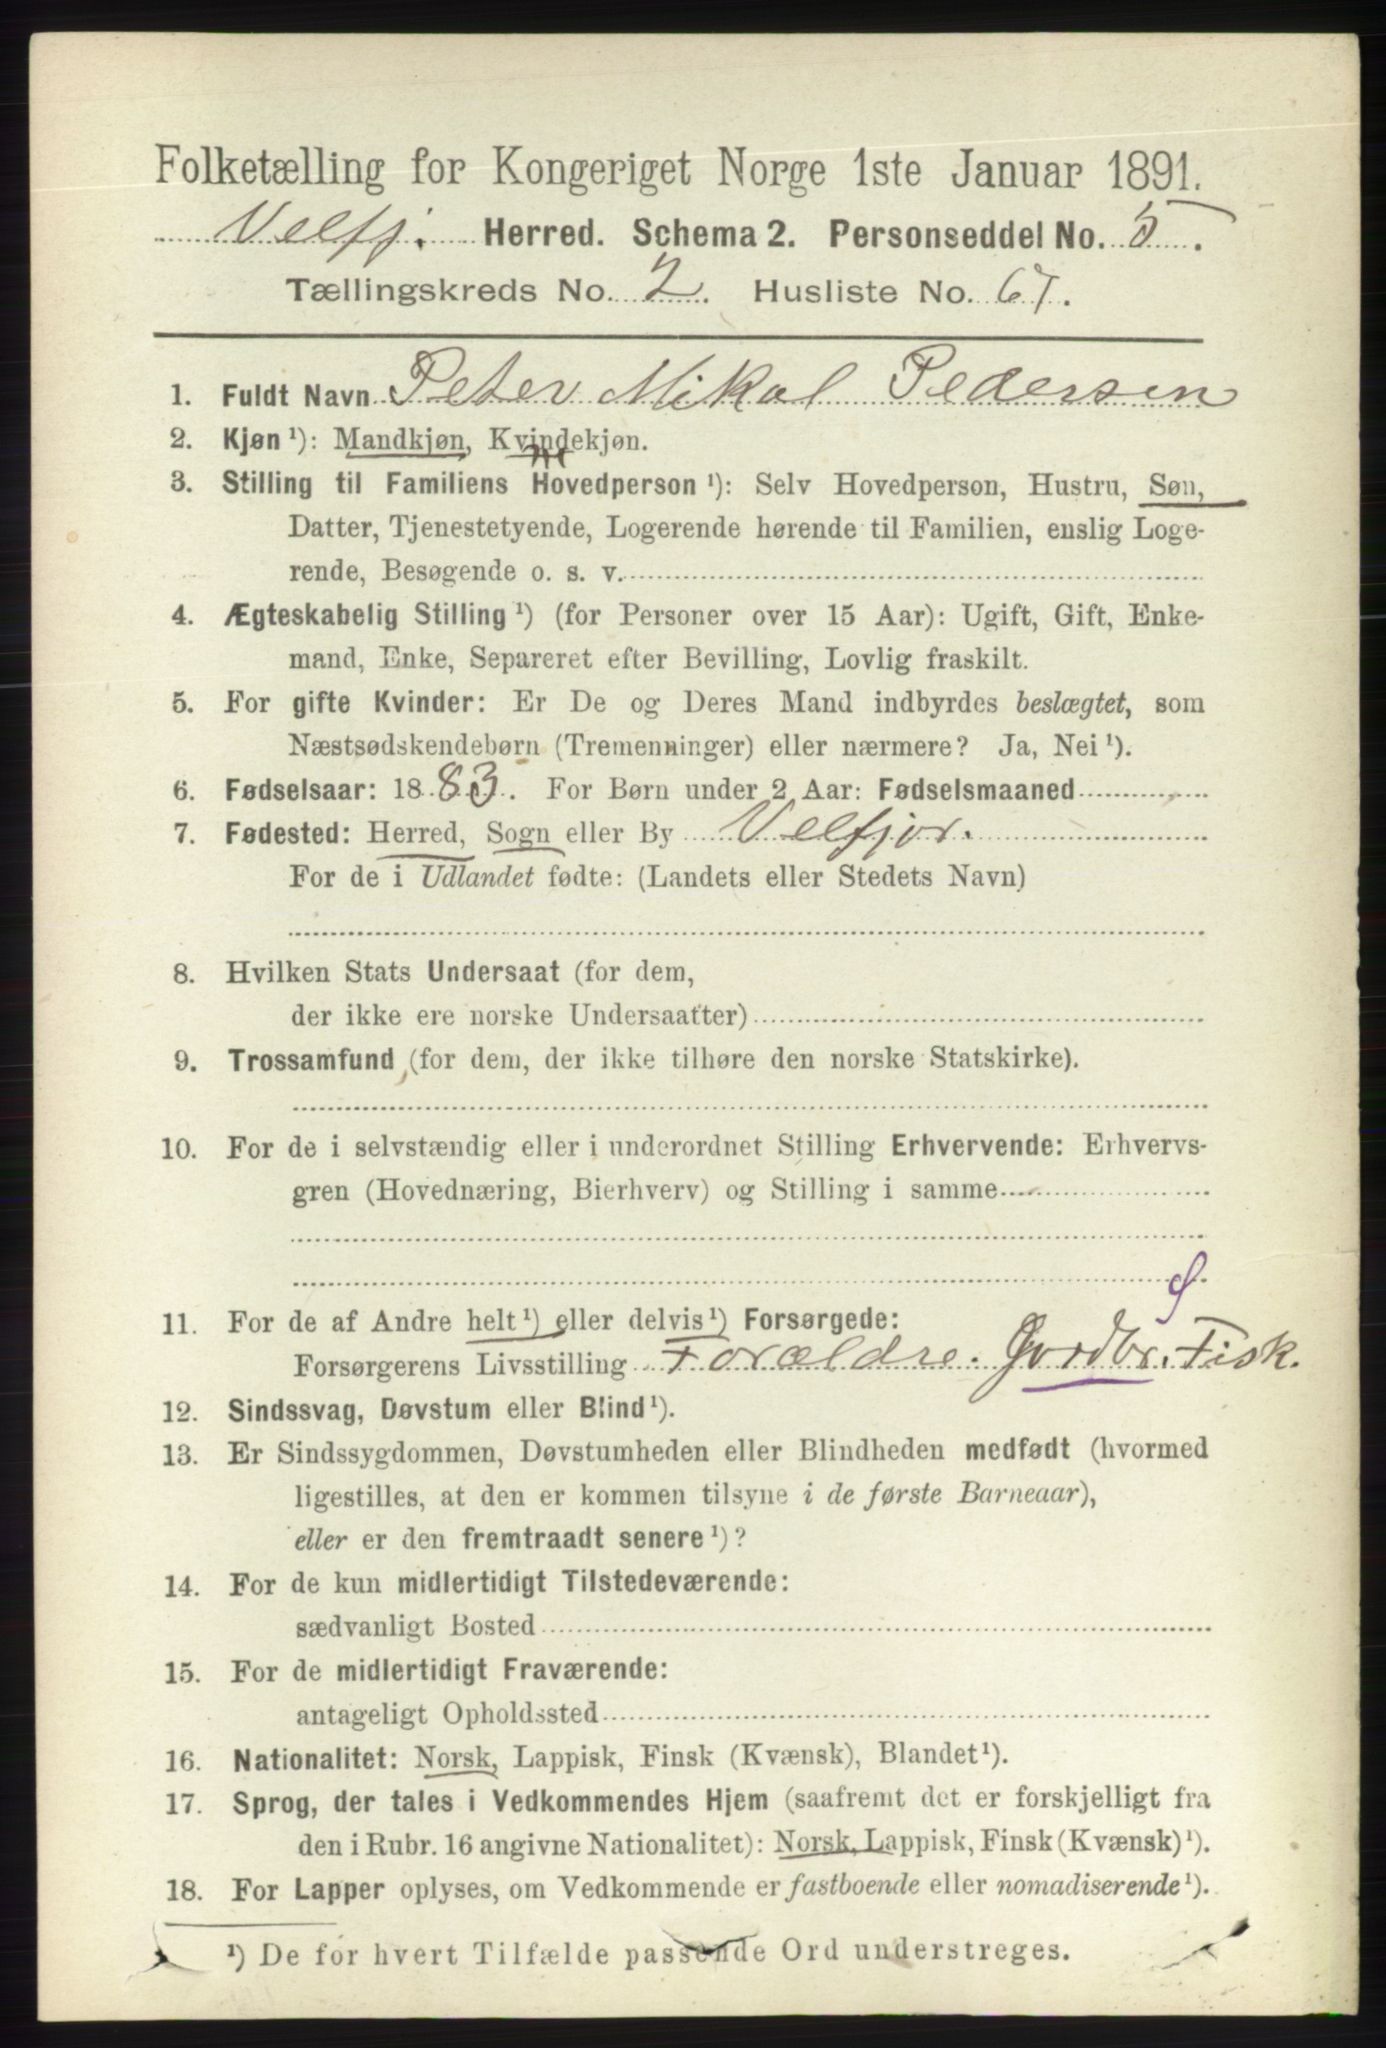 Folketælling for Kongeriget Norge 1ste Januar 1891.
Velfj. Herred. Schema 2. Personseddel No. 5.
Tællingskreds No. 2. Husliste No. 67.
1. Fuldt Navn Peter Mikal Pedersen
2. Kjøn ¹): Mandkjøn, Kvindekjøn.
3. Stilling til Familiens Hovedperson ¹): Selv Hovedperson, Hustru, Søn,
Datter, Tjenestetyende, Logerende hørende til Familien, enslig Loge-
rende, Besøgende o. s. v.
4. Ægteskabelig Stilling ¹) (for Personer over 15 Aar): Ugift, Gift, Enke-
mand, Enke, Separeret efter Bevilling, Lovlig fraskilt.
5. For gifte Kvinder: Er De og Deres Mand indbyrdes beslægtet, som
Næstsødskendebørn (Tremenninger) eller nærmere? Ja, Nei ¹).
6. Fødselsaar: 1883. For Børn under 2 Aar: Fødselsmaaned
7. Fødested: Herred, Sogn eller By Velfjor.
For de i Udlandet fødte: (Landets eller Stedets Navn)
8. Hvilken Stats Undersaat (for dem,
der ikke ere norske Undersaatter)
9. Trossamfund (for dem, der ikke tilhøre den norske Statskirke).
10. For de i selvstændig eller i underordnet Stilling Erhvervende: Erhvervs-
gren (Hovednæring, Bierhverv) og Stilling i samme
11. For de af Andre helt ¹) eller delvis ¹) Forsørgede:
Forsørgerens Livsstilling Forældre. Gordbr. Fisk.
12. Sindssvag, Døvstum eller Blind ¹).
13. Er Sindssygdommen, Døvstumheden eller Blindheden medfødt (hvormed
ligestilles, at den er kommen tilsyne i de første Barneaar),
eller er den fremtraadt senere ¹)?
14. For de kun midlertidigt Tilstedeværende:
sædvanligt Bosted
15. For de midlertidigt Fraværende:
antageligt Opholdssted
16. Nationalitet: Norsk, Lappisk, Finsk (Kvænsk), Blandet ¹).
17. Sprog, der tales i Vedkommendes Hjem (saafremt det er forskjelligt fra
den i Rubr. 16 angivne Nationalitet): Norsk, Lappisk, Finsk (Kvænsk) ¹).
18. For Lapper oplyses, om Vedkommende er fastboende eller nomadiserende ¹).
¹) De for hvert Tilfælde passende Ord understreges.